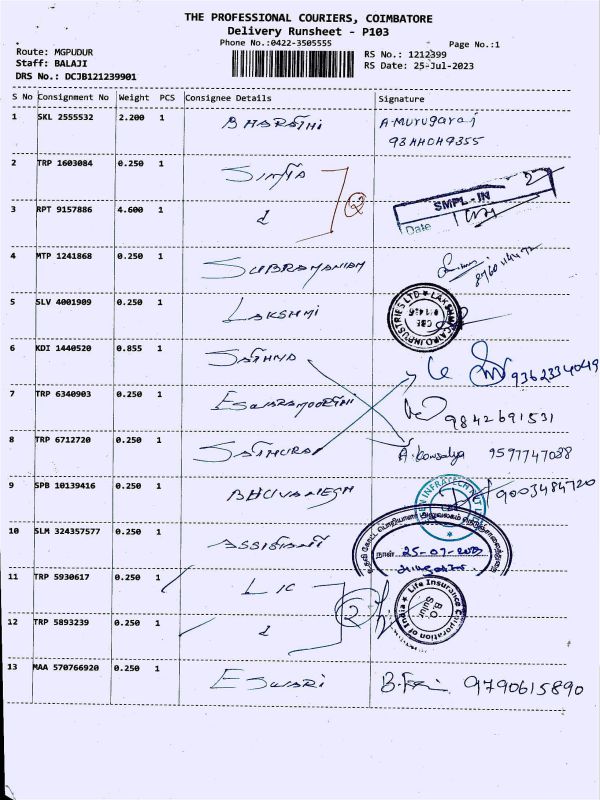 THE PROFESSIONAL COURIERS, COIMBATORE
Delivery Runsheet - P103
Phone No.:0422-3505555
Page No.:1
Route: MGPUDUR
RS No.: 1212399
Staff: BALAJI
RS Date: 25-Jul-2023
DRS No.: DCJB121239901
S No Consignment No Weight PCS Consignee Details Signature
1 SKL 2555532 2.200 1 BHARATHI A Murugaraj
2 TRP 1603084 0.250 1 2
SMPL-IN
3 RPT 9157886 4.600 1
Date
4 MTP 1241868 0.250 1 SUBRAMANIAM
5 SLV 4001909 0.250 1 LAKSHMI
CBE
6 KDI 1440520 0.855 1 SATHYA 9362334049
7 TRP 6340903 0.250 1 ESWARAMOORTHI 9842691531
8 TRP 6712720 0.250 1 A. Kowsalya 9597747088
9 SPB 10139416 0.250 1 BHUVANESH 9003484720
10 SLM 324357577 0.250 1 ASSISTANT
நாள் 25-07-2023
11 TRP 5930617 0.250 1 LIC 2
Life Insurance Corporation of India
B.O
Sulur
12 TRP 5893239 0.250 1
13 MAA 570766920 0.250 1 ESWARI 9790615890